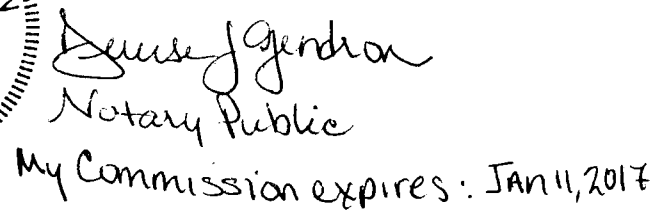 Denise J Gendron
Notary Public
My Commission expires: JAN 11, 2017